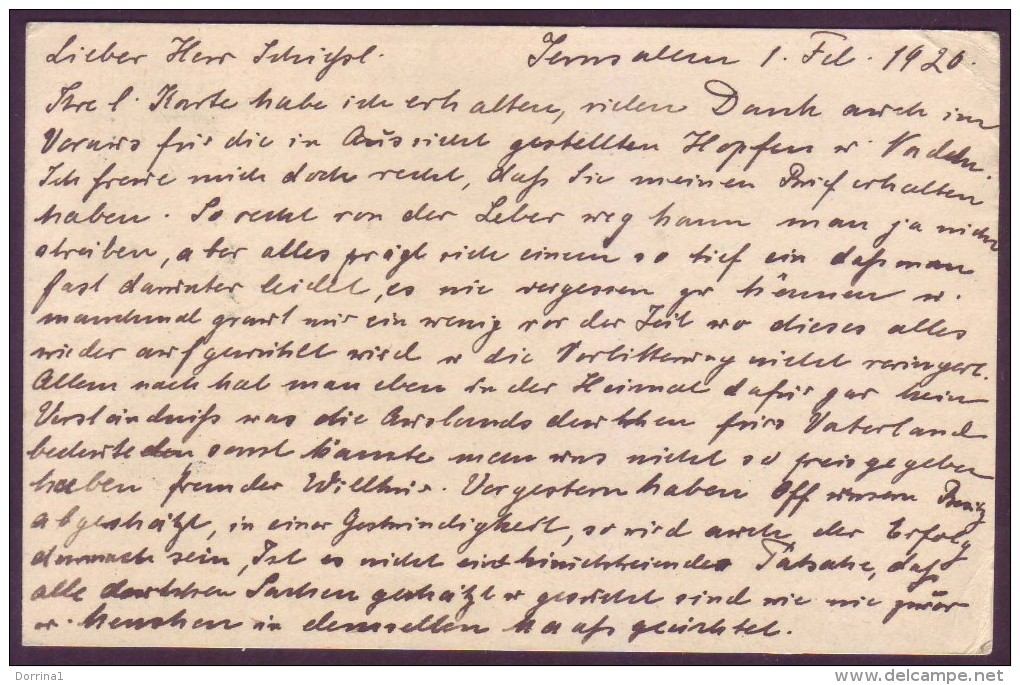 Lieber Herr Jerusalem 1. Feb. 1920.
Ihre l. Karte habe ich erhalten, vielen Dank auch im
Voraus für die in Aussicht gestellten Hopfen u. Nadeln.
Ich freue mich doch recht, daß Sie meinen Brief erhalten
haben. So recht von der Leber weg kann man ja nicht
schreiben, aber alles prägt sich einem so tief ein daß man
fast darunter leidet, es nie vergessen zu können u.
manchmal graut mir ein wenig vor der Zeit wo dieses alles
wieder aufgewühlt wird u die Verbitterung nicht verringert.
Allem nach hat man eben in der Heimat dafür gar kein
Verständniß was die Auslandsdeutschen fürs Vaterland
bedeuteten sonst könnte man uns nicht so preisgegeben
haben fremder Willkür. Vorgestern haben Off unsern Besitz
abgeschätzt, in einer Geschwindigkeit, so wird auch der Erfolg
darnach sein, Ist es nicht eine himmelschreiende Tatsache, daß
alle deutschen Sachen geschätzt u gesucht sind wie nie zuvor
u. Menschen in demselben Maaß geächtet.
Dorrina1 www.delcampe.net